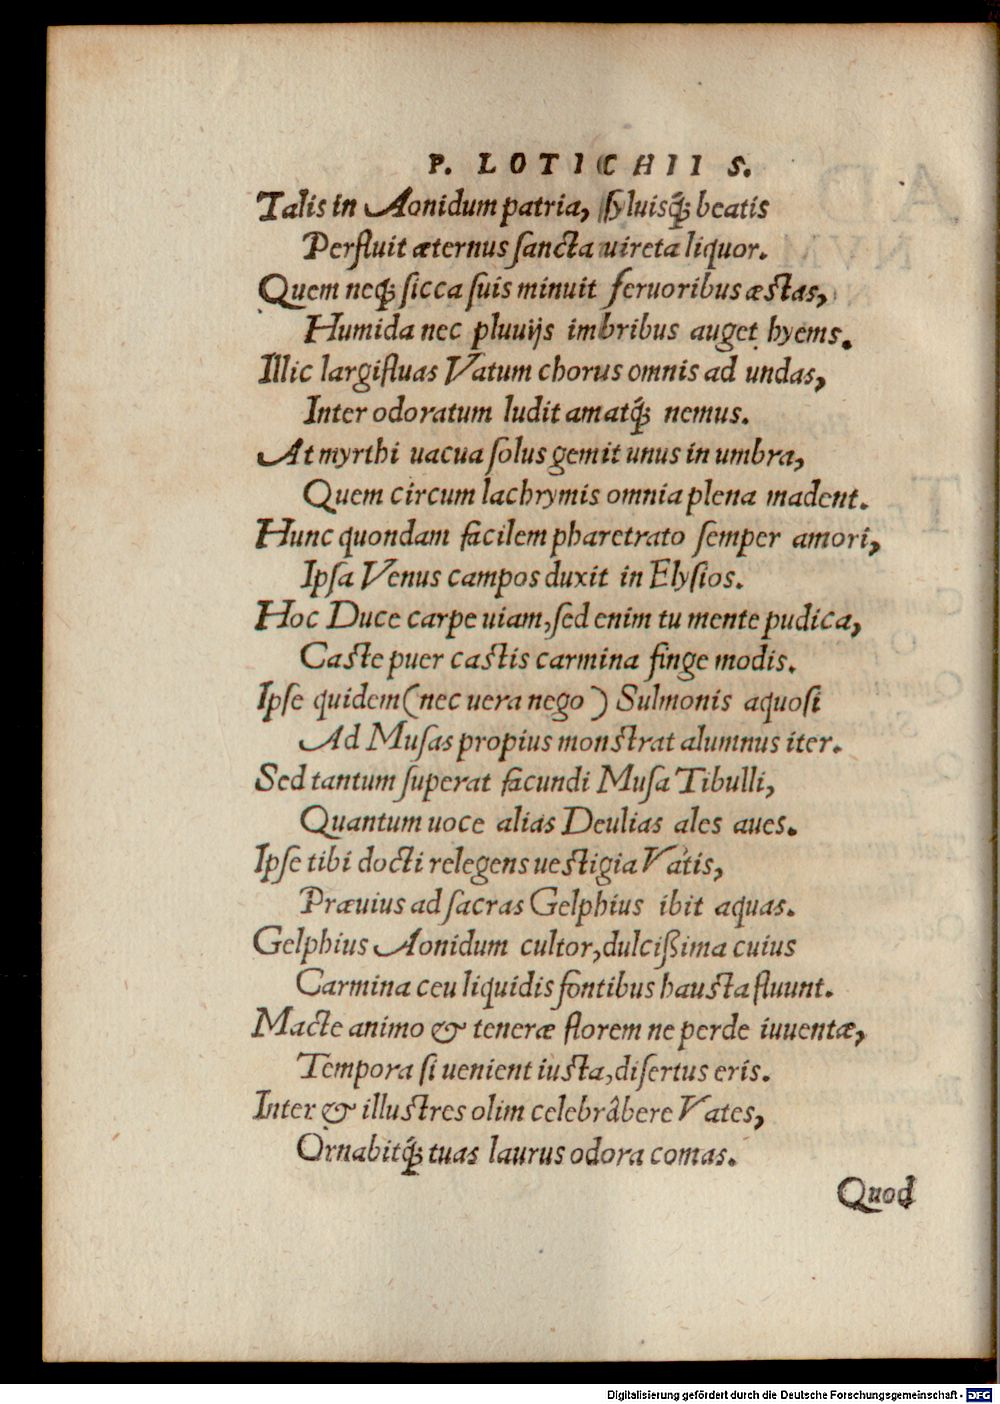 P. LOTICHII S.
Talis in Aonidum patria, ſyluisq́ꝫ beatis
Perfluit æternus ſancta uireta liquor.
Quem neqꝫ ſicca ſuis minuit feruoribus æstas,
Humida nec pluuijs imbribus auget hyems.
Illic largifluas Vatum chorus omnis ad undas,
Inter odoratum ludit amatq́ꝫ nemus.
At myrthi uacua ſolus gemit unus in umbra,
Quem circum lachrymis omnia plena madent.
Hunc quondam facilem pharetrato ſemper amori,
Ipſa Venus campos duxit in Elyſios.
Hoc Duce carpe uiam, ſed enim tu mente pudica,
Caste puer castis carmina finge modis.
Ipſe quidem (nec uera nego) Sulmonis aquoſi
Ad Muſas propius monstrat alumnus iter.
Sed tantum ſuperat facundi Muſa Tibulli,
Quantum uoce alias Deulias ales aues.
Ipſe tibi docti relegens uestigia Vatis,
Præuius ad ſacras Gelphius ibit aquas.
Gelphius Aonidum cultor, dulcißima cuius
Carmina ceu liquidis fontibus hausta fluunt.
Macte animo & teneræ florem ne perde iuuentæ,
Tempora ſi uenient iusta, diſertus eris.
Inter & illustres olim celebrâbere Vates,
Ornabitq́ꝫ tuas laurus odora comas.
Quod
Digitalisierung gefördert durch die Deutsche Forschungsgemeinschaft - DFG